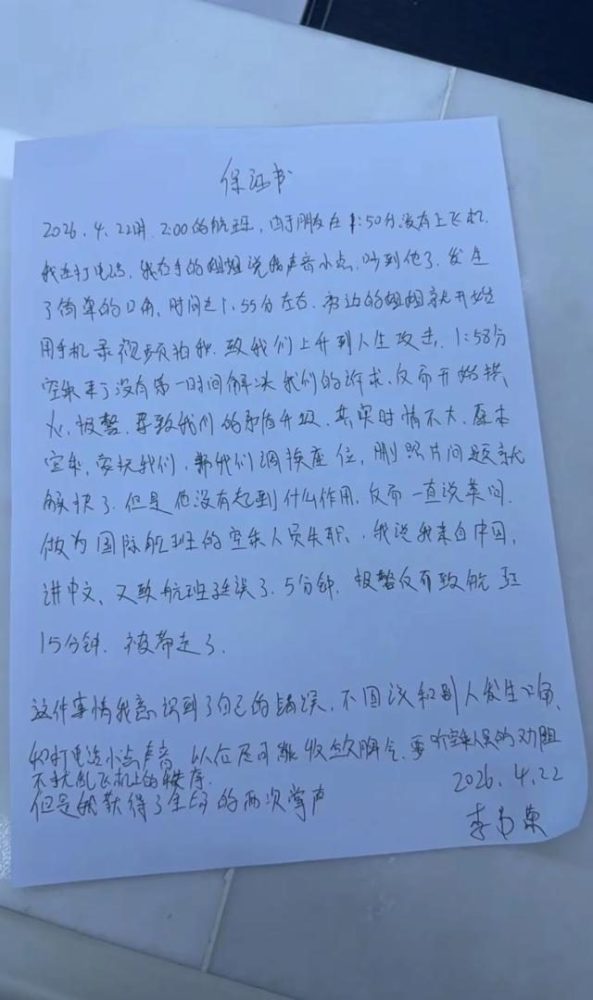 保证书
2026.4.22时.2:00的航班,由于朋友在1:50分没有上飞机.
我在打电话.我右手的姐姐说我声音小点.吵到他了.发生
了简单的口角.时间在1.55分左右.旁边的姐姐就开始
用手机录视频拍我.致我们上升到人生攻击.1:58分
空乘来了没有第一时间解决我们的诉求.反而开始拱
火.报警.导致我们的矛盾升级.其实时情不大.原本
空乘.安抚我们.帮我们调换座位,删照片问题就
解决了.但是他没有起到什么作用.反而一直说英问.
做为国际航班的空乘人员失职.我说我来自中国,
讲中文.又致航班延误了.5分钟.报警反而致航班
15分钟.被带走了.
这件事情我意识到了自己的错误,不因该和别人发生口角.
打电话小点声音.以后尽可能收敛脾气.要听空乘人员的劝阻
不扰乱飞机上的秩序.
但是我获得了全场的两次掌声
2026.4.22
李